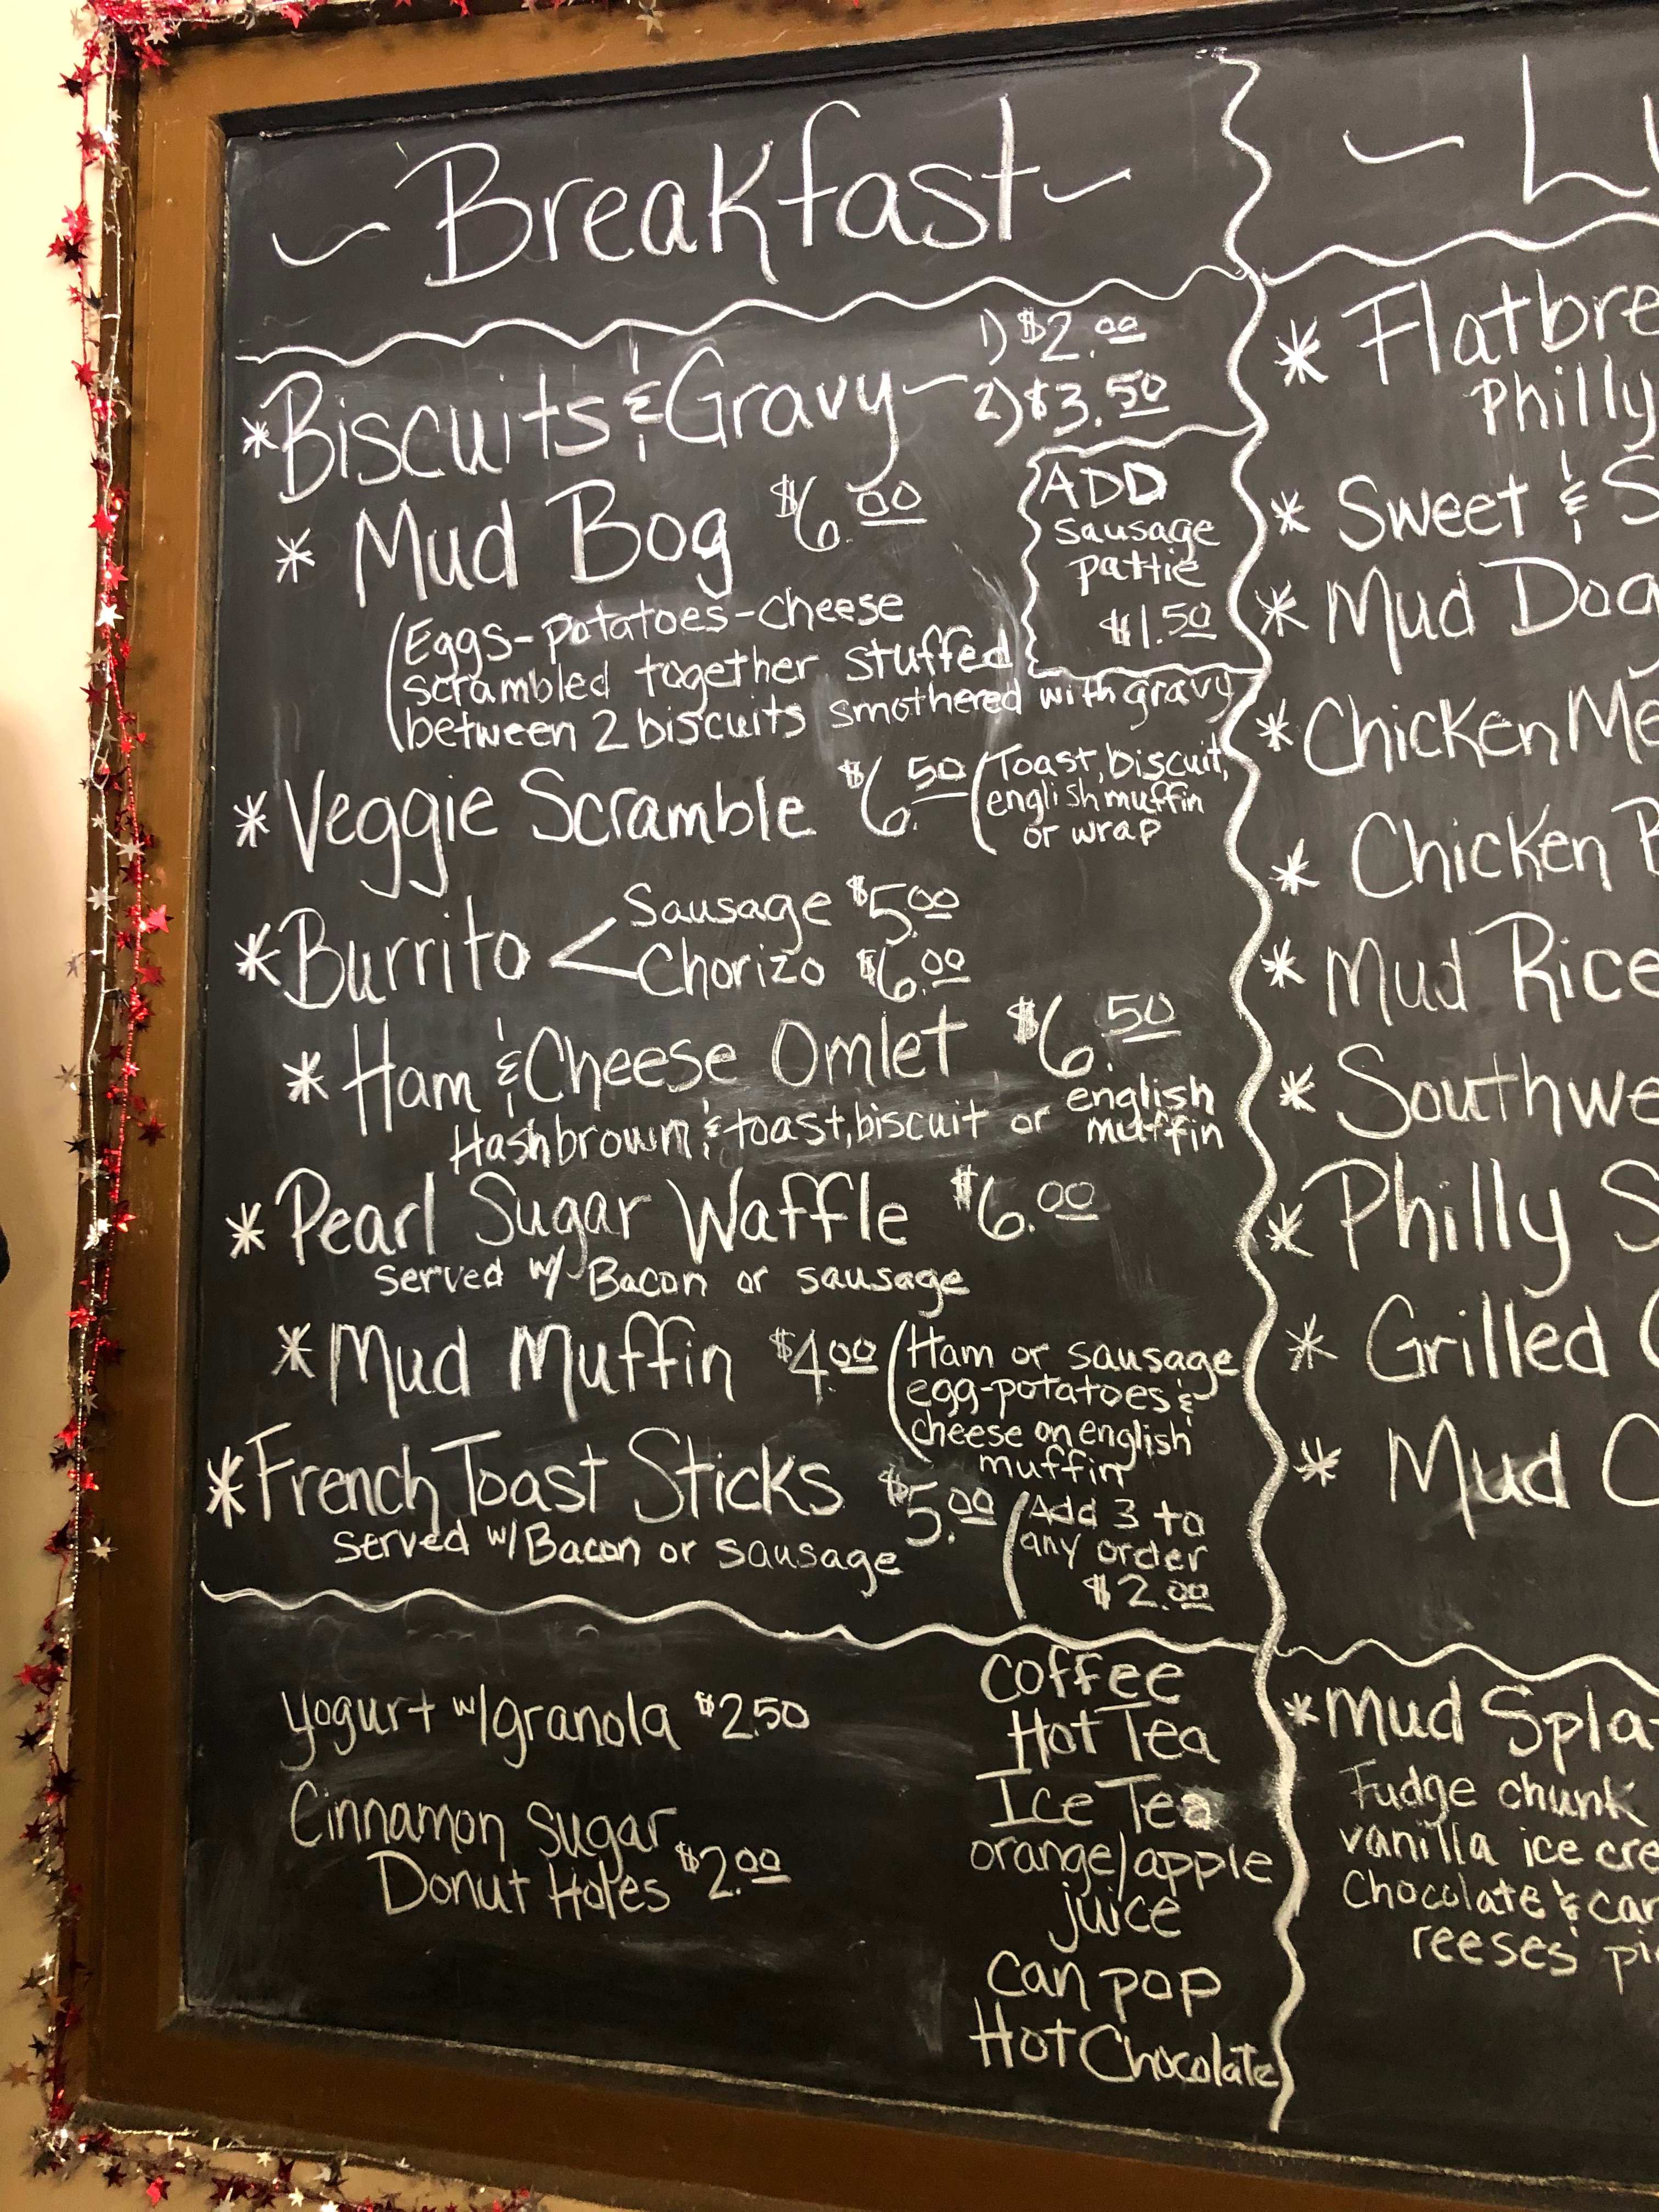 ~ Breakfast ~
*Biscuits & Gravy ~ 1) $2.00
2) $3.50
ADD
sausage
pattie
$1.50
* Mud Bog $6.00
(Eggs-potatoes-cheese
scrambled together stuffed
between 2 biscuits smothered with gravy
* Veggie Scramble $6.50 (Toast, biscuit,
english muffin
or wrap
* Burrito < Sausage $5.00
Chorizo $6.00
* Ham & Cheese Omlet $6.50
Hashbrown & toast, biscuit or english
muffin
* Pearl Sugar Waffle $6.00
served w/ Bacon or sausage
* Mud Muffin $4.00 (Ham or sausage
egg-potatoes &
cheese on english
muffin
* French Toast Sticks $5.00
served w/ Bacon or sausage
(Add 3 to
any order
$2.00
Yogurt w/granola $2.50
Cinnamon Sugar
Donut Holes $2.00
Coffee
Hot Tea
Ice Tea
orange/apple
juice
Can pop
Hot Chocolate
~ Lu
* Flatbre
Philly
* Sweet & S
* Mud Dog
* Chicken Me
* Chicken
* Mud Rice
* Southwe
* Philly S
* Grilled
* Mud
* Mud Spla
Fudge chunk
vanilla ice cre
Chocolate & car
reeses pi